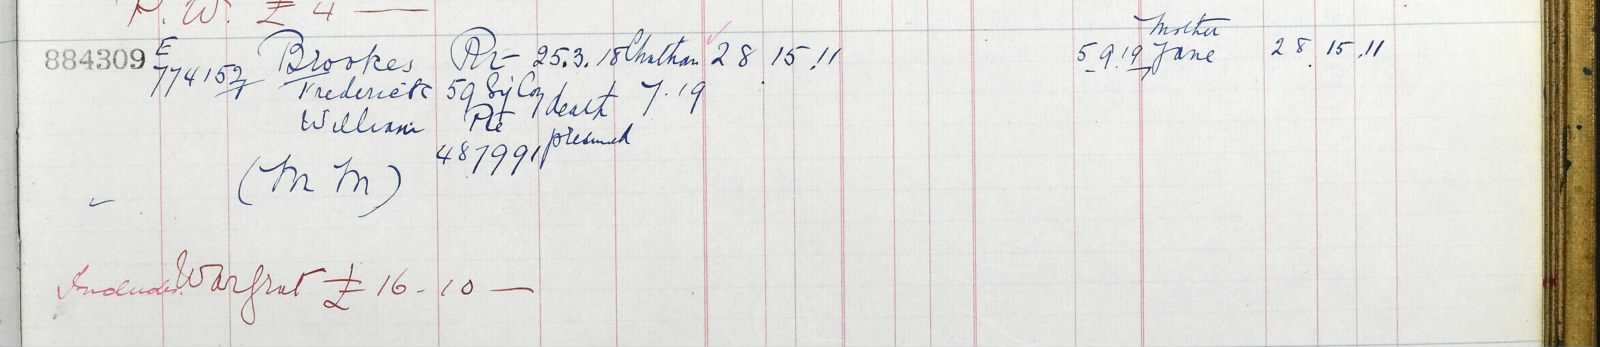 P. W. £ 4 —
884309 E Brookes Rr- 25.3.18 Chatham 28 15 .11 5.9.19 Mother Jane 28. 15 .11
774152/1 Frederick 59 Sig Coy death 7.19
William Pte presumed
487991
(M M)
Includes War Grat £ 16 - 10 —